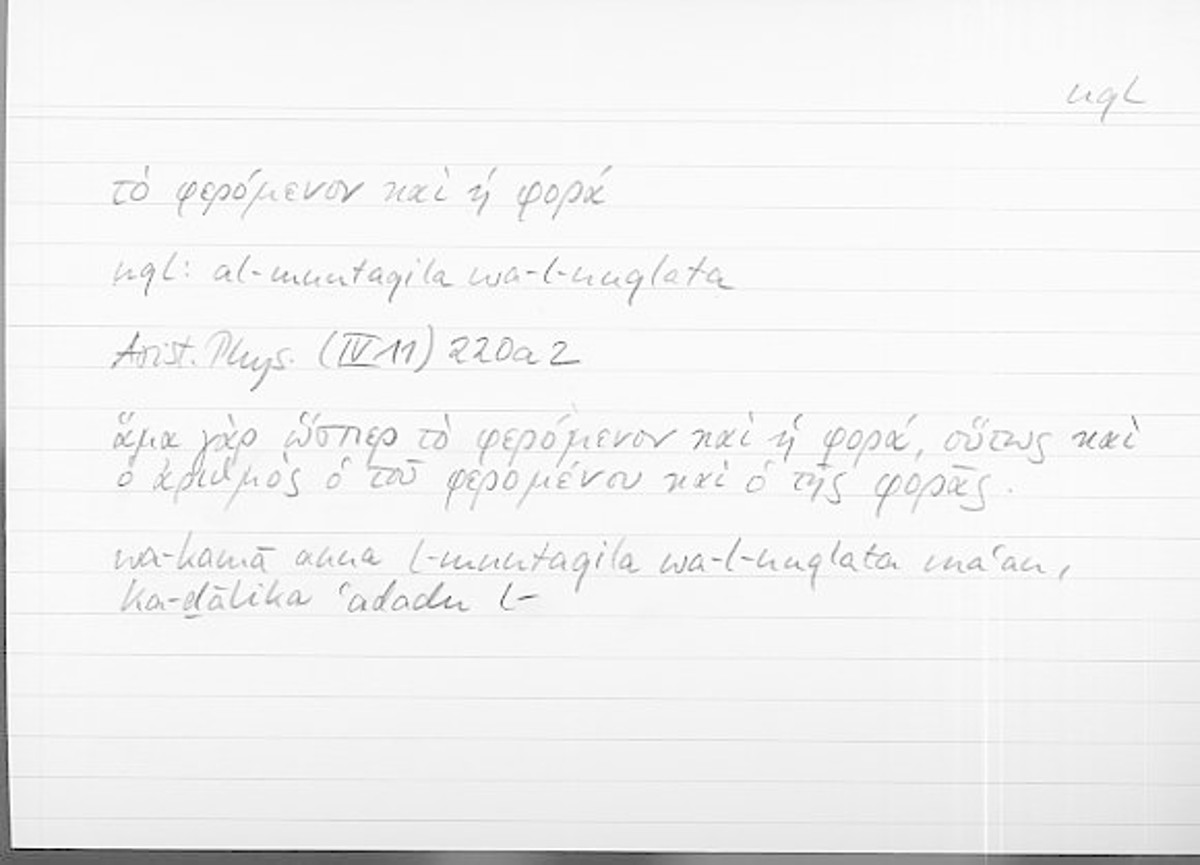 nql
τὸ φερόμενον καὶ ἡ φορά
nql: al-muntaqila wa-l-nuqlata
Arist. Phys. (IV 11) 220a2
ἅμα γὰρ ὥσπερ τὸ φερόμενον καὶ ἡ φορά, οὕτως καὶ
ὁ ἀριθμὸς ὁ τοῦ φερομένου καὶ ὁ τῆς φορᾶς.
wa-kamā anna l-muntaqila wa-l-nuqlata maʿan,
ka-ḏālika ʿadadu l-